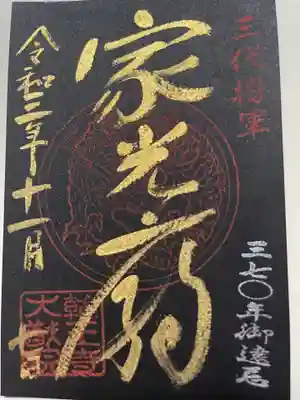 三代将軍
三七〇年御遠忌
家光廟
令和三年十一月七日
輪王寺
大猷院